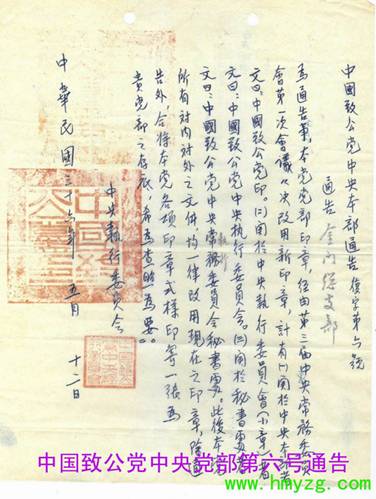 中國致公党中央本部通告 復字第六號
通告 總支部
為通告事,本党党部印章,经由第三屆中央常務委員
會第一次會議々决改用新印章,計有㈠關於中央本部者
文曰:中國致公党印。㈡關於中央執行委員會(小章)者
文曰:中國致公党中央执行委員会。㈢關於秘書處者
文曰:中國致公党中央常務委員会秘書處。此後本党
所有对內对外之文件,均一律改用現在之印章,除通
告外,合将本党各項印章式樣印寄一張為
貴党部之存底,希為查照為要。
中央執行委員会
中華民國三十六年 五月 十二日
中国致公党中央党部第六号通告
www.hmyzg.com